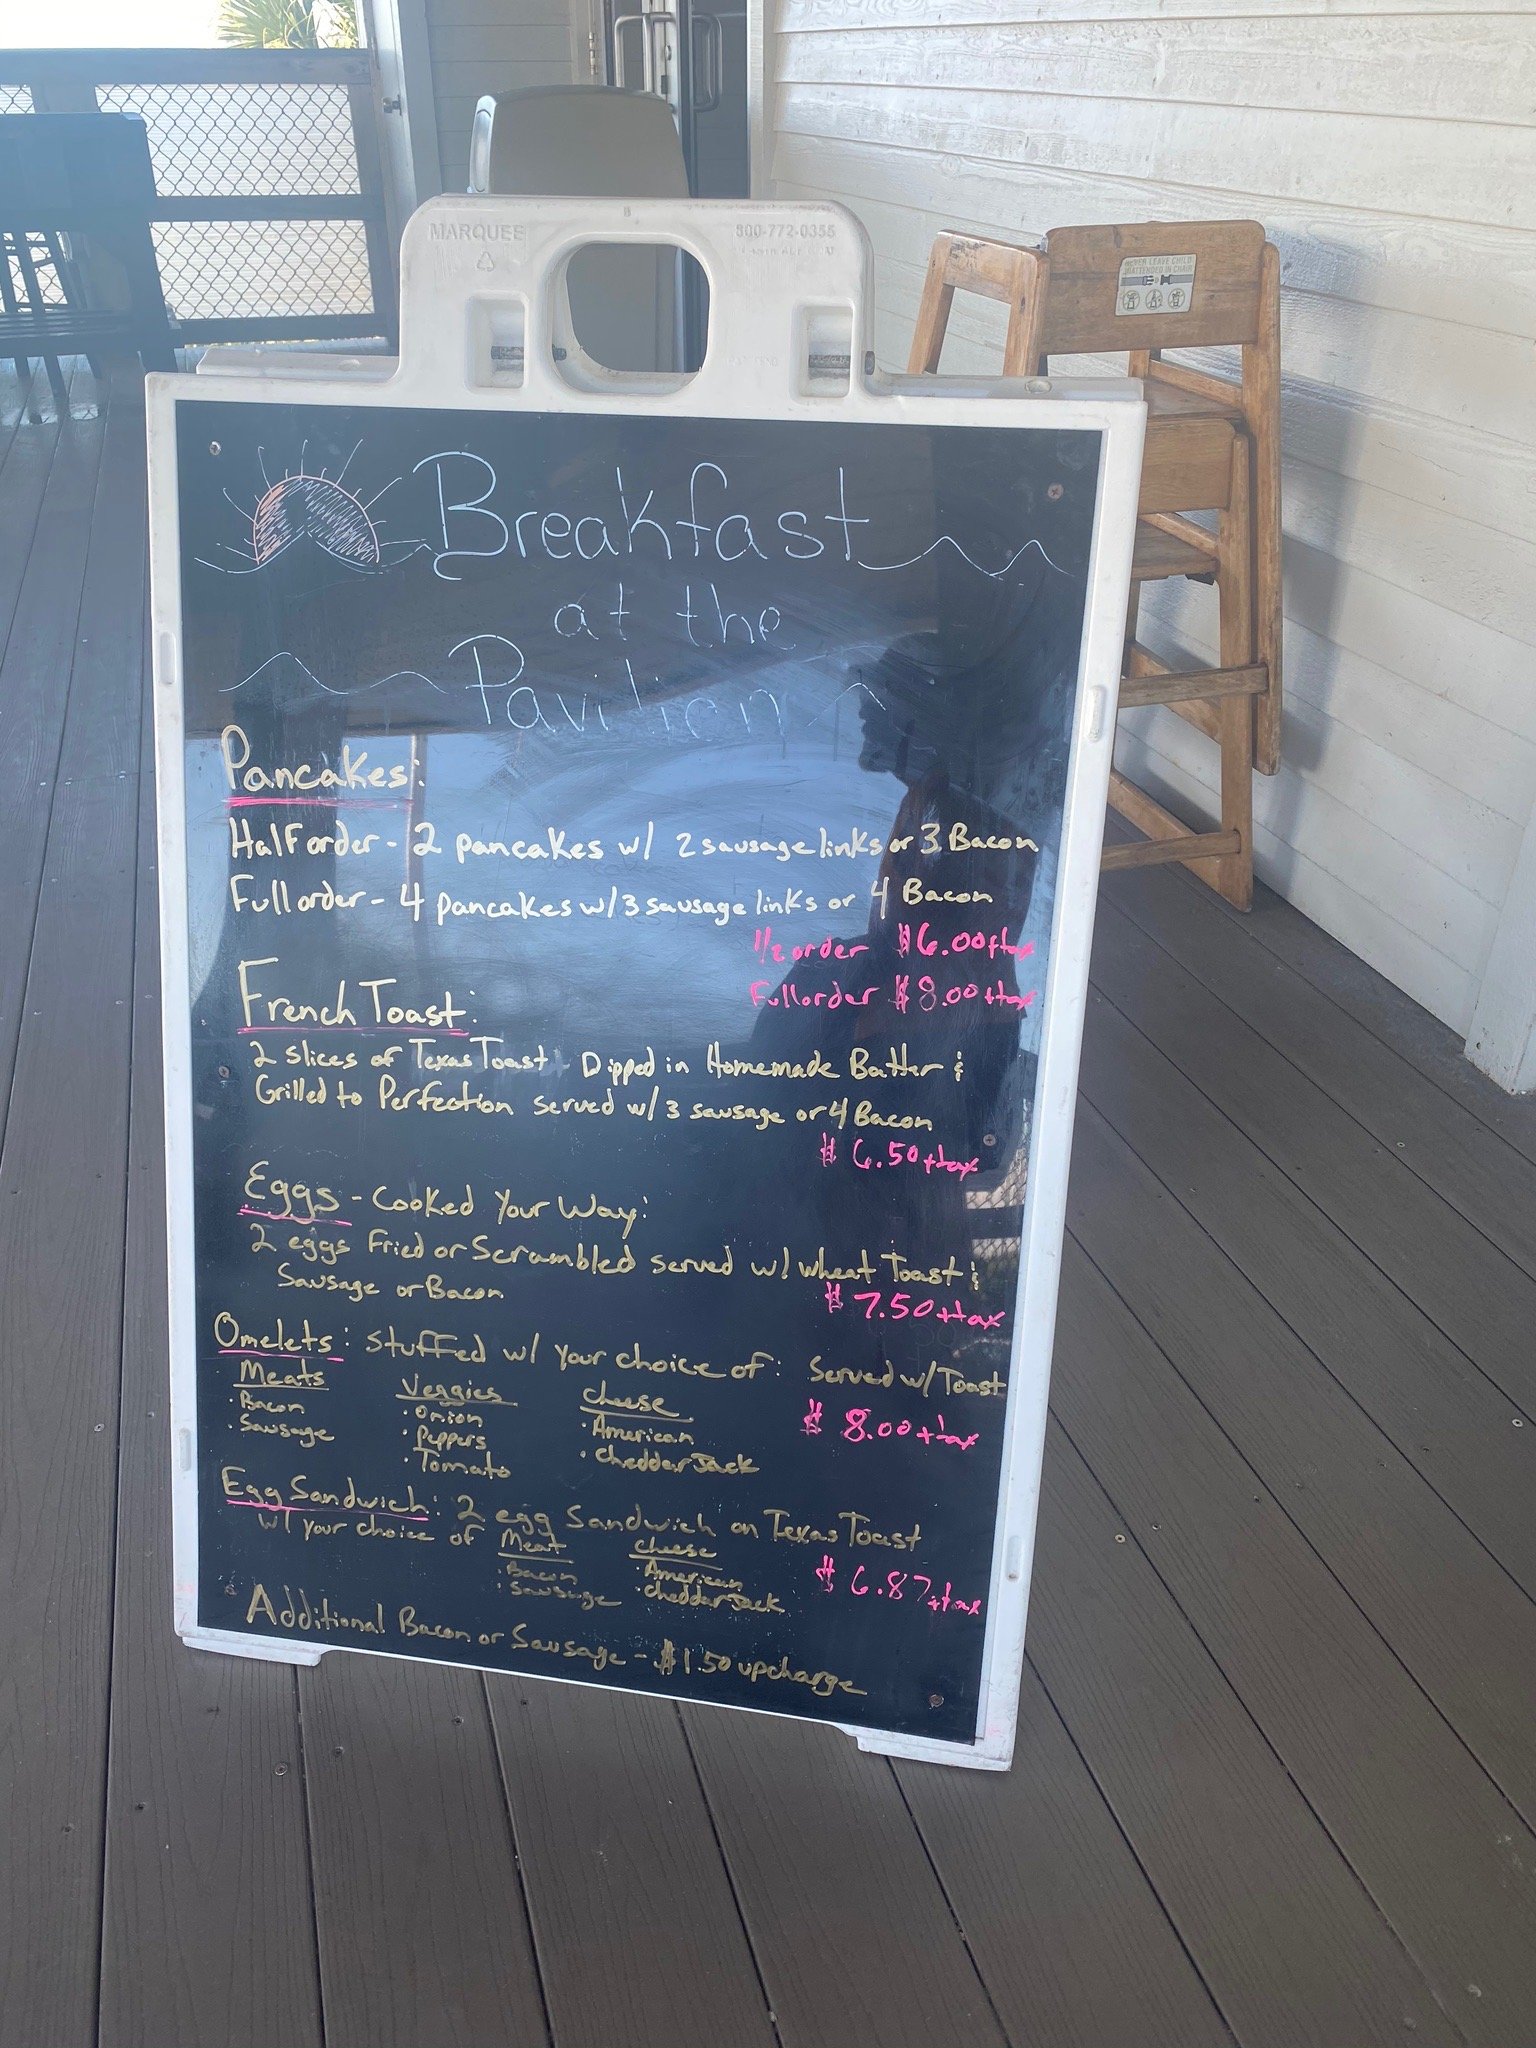 MARQUEE
800-772-0355
NEVER LEAVE CHILD
UNATTENDED IN CHAIR
Breakfast
at the
Pavilion
Pancakes:
Half order - 2 pancakes w/ 2 sausage links or 3 Bacon
Full order - 4 pancakes w/ 3 sausage links or 4 Bacon
1/2 order $6.00 + tax
Full order $8.00 + tax
French Toast:
2 slices of Texas Toast - Dipped in Homemade Batter &
Grilled to Perfection served w/ 3 sausage or 4 Bacon
$6.50 + tax
Eggs - Cooked Your Way:
2 eggs Fried or Scrambled served w/ wheat Toast &
Sausage or Bacon
$7.50 + tax
Omelets: stuffed w/ your choice of: Served w/ Toast
Meats Veggies Cheese
· Bacon · Onion · American
· Sausage · Peppers · CheddarJack
· Tomato
$8.00 + tax
Egg Sandwich: 2 egg Sandwich on Texas Toast
w/ your choice of Meat Cheese
· Bacon · American
· Sausage · CheddarJack
$6.87 + tax
Additional Bacon or Sausage - $1.50 upcharge